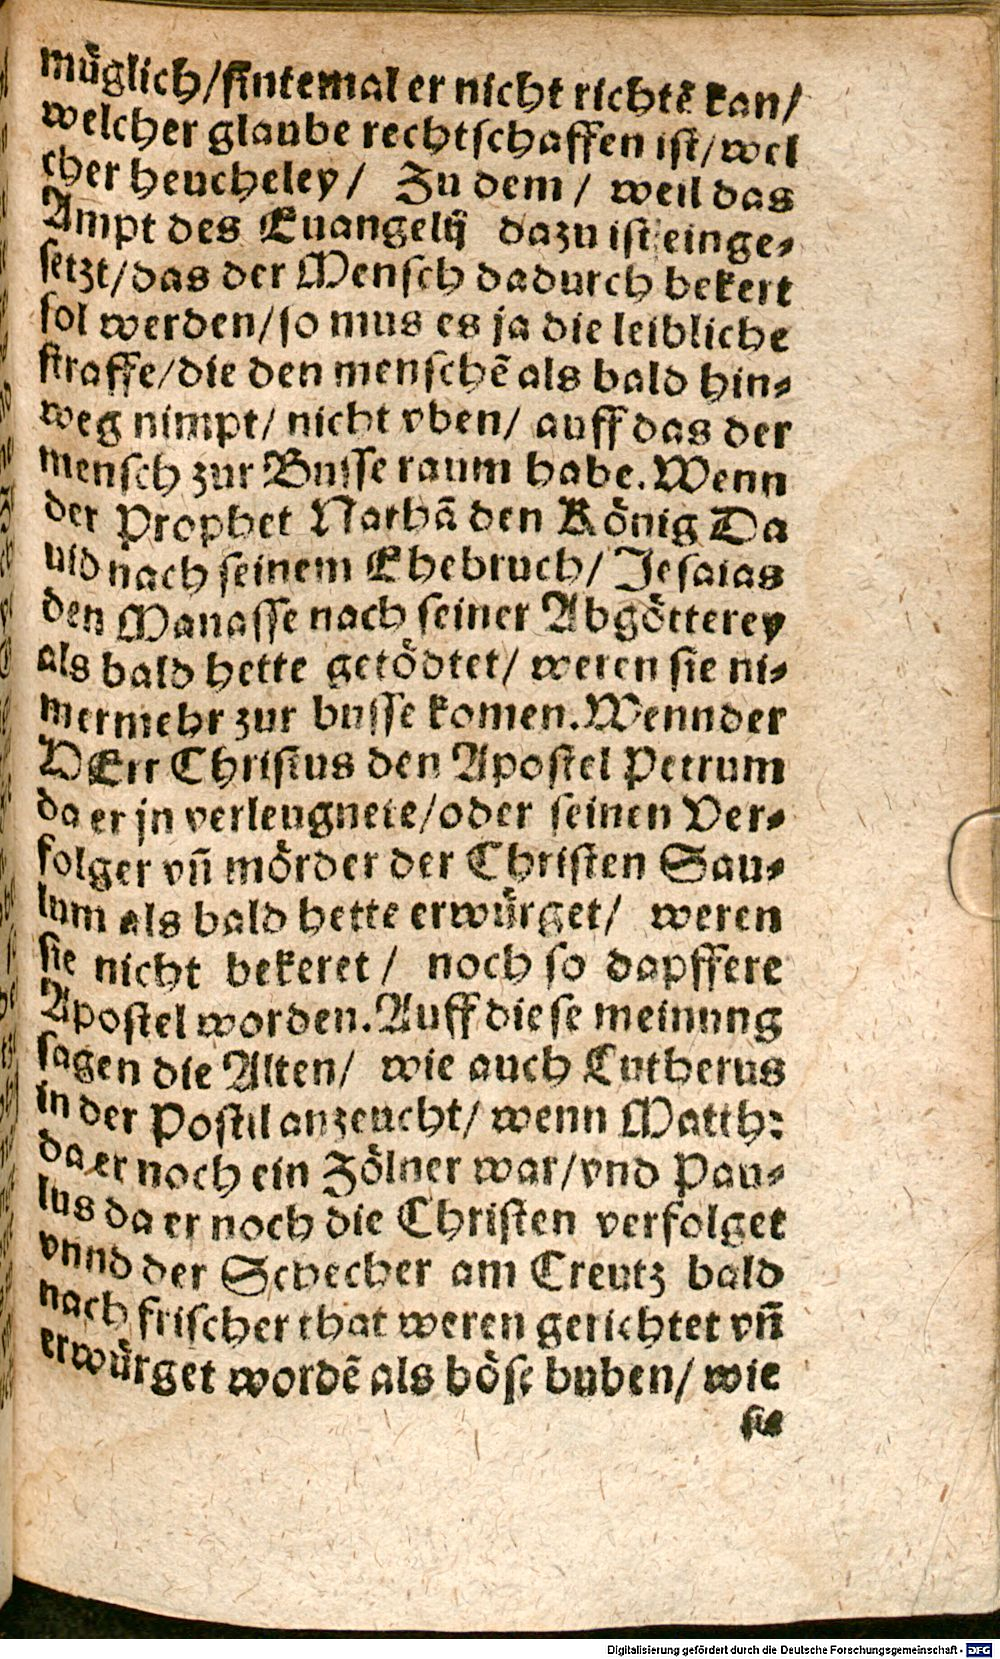 müglich/sintemal er nicht richtẽ kan/
welcher glaube rechtschaffen ist/wel
cher heucheley/ Zu dem/ weil das
Ampt des Euangelij dazu ist einge-
setzt/das der Mensch dadurch bekert
sol werden/so mus es ja die leibliche
straffe/die den menschẽ als bald hin-
weg nimpt/ nicht vben/ auff das der
mensch zur Busse raum habe. Wenn
der Prophet Nathã den König Da
uid nach seinem Ehebruch/ Jesaias
den Manasse nach seiner Abgötterey
als bald hette getödtet/ weren sie ni-
mermehr zur busse komen. Wenn der
HErr Christus den Apostel Petrum
da er jn verleugnete/oder seinen Ver-
folger vñ mörder der Christen Sau-
lum als bald hette erwürget/ weren
sie nicht bekeret/ noch so dapffere
Apostel worden. Auff diese meinung
sagen die Alten/ wie auch Lutherus
in der Postil anzeucht/ wenn Matth:
da er noch ein Zölner war/vnd Pau-
lus da er noch die Christen verfolget
vnnd der Schecher am Creutz bald
nach frischer that weren gerichtet vñ
erwürget wordẽ als böse buben/ wie
sie
Digitalisierung gefördert durch die Deutsche Forschungsgemeinschaft - DFG